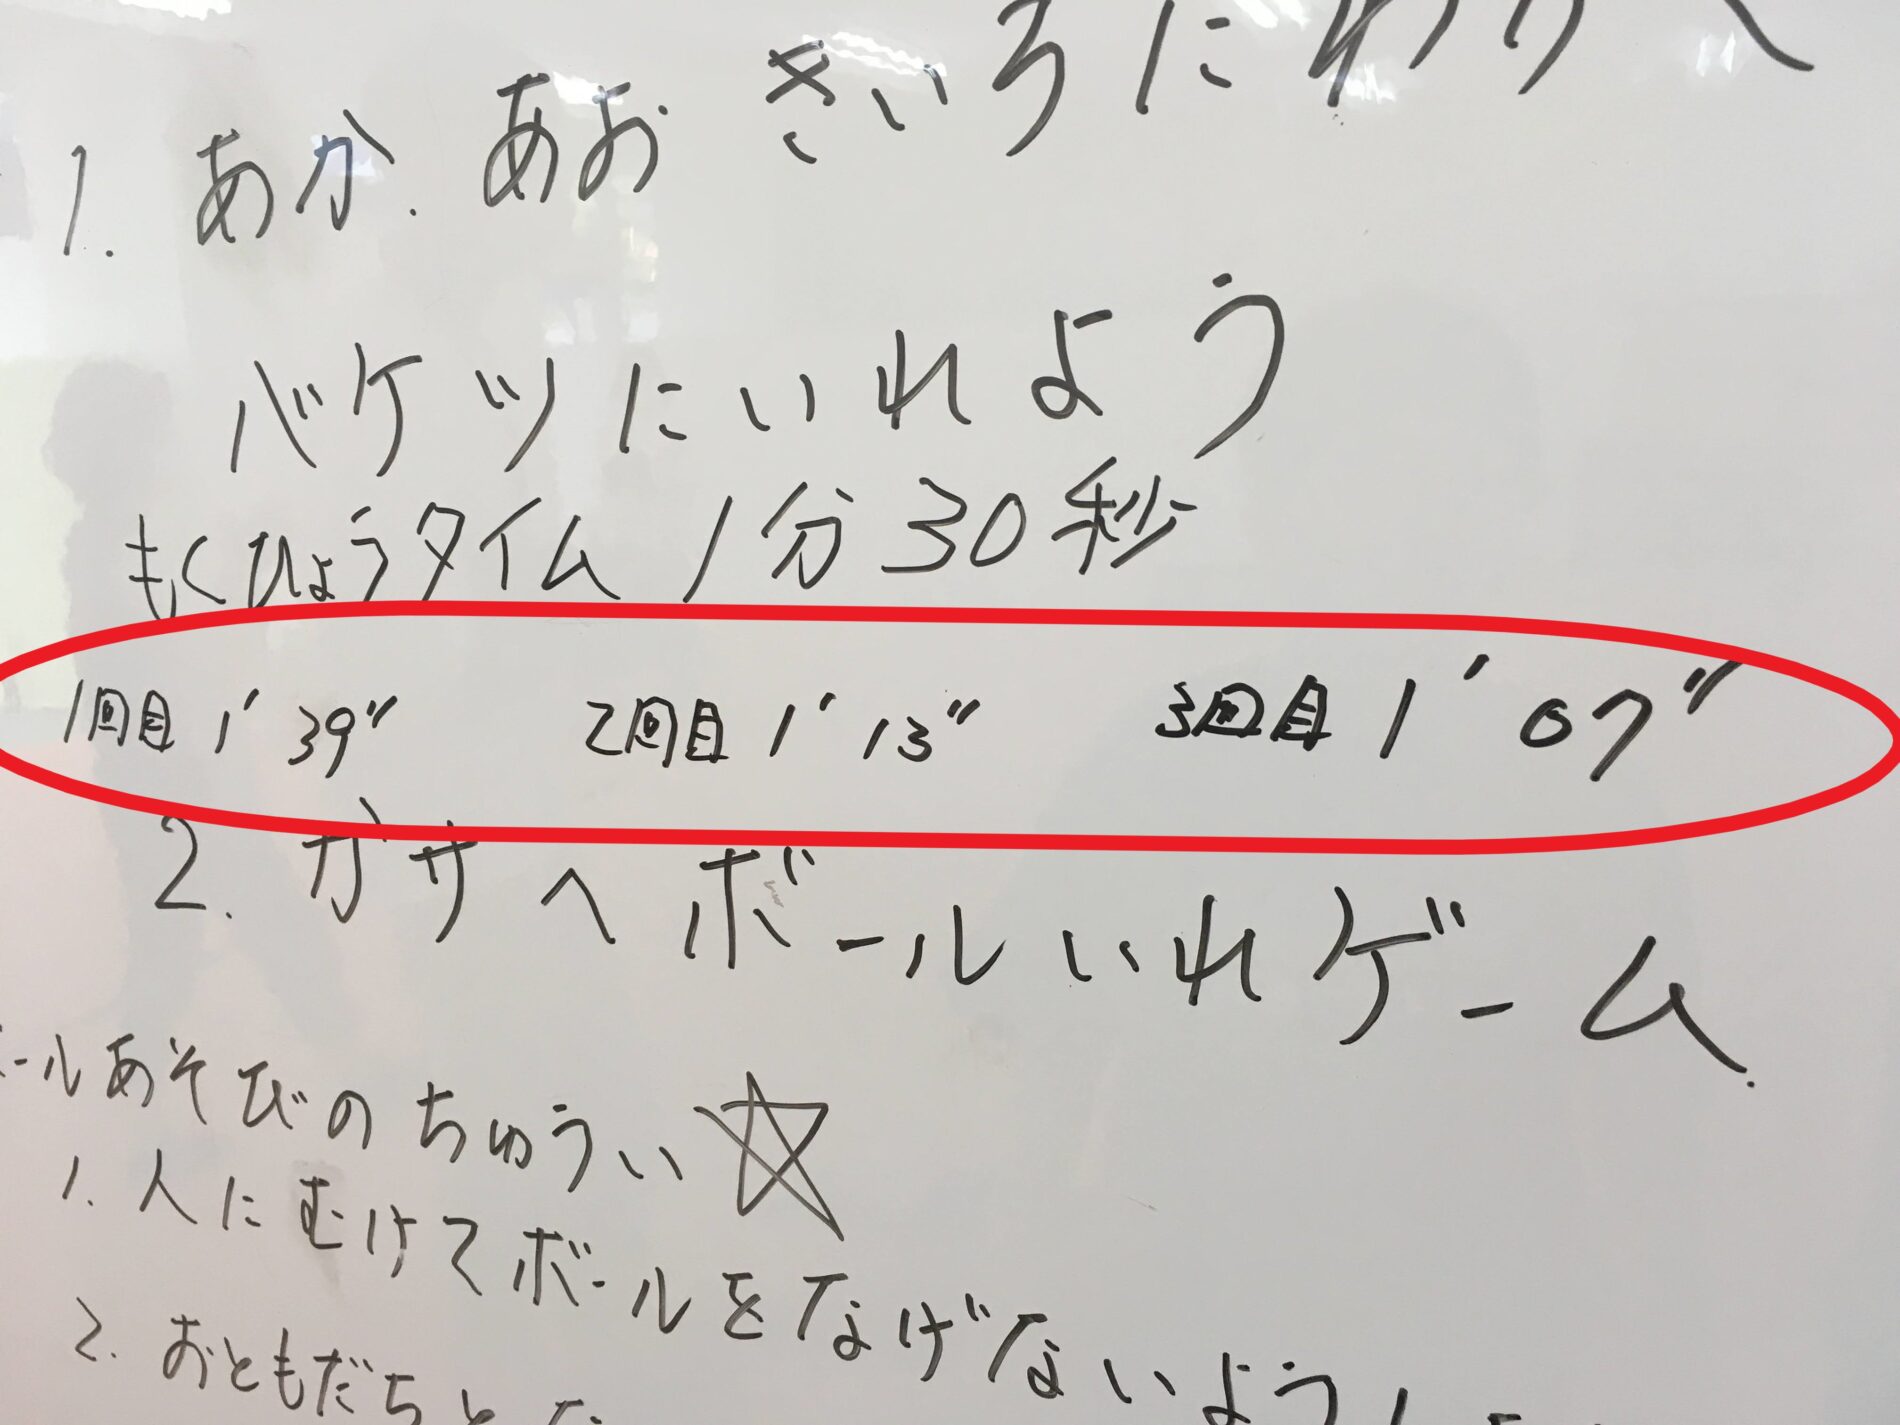 1. あか. あお きいろにわけて
バケツにいれよう
もくひょうタイム 1分30秒
1回目 1′39″ 2回目 1′13″ 3回目 1′07″
2. カサへボールいれゲーム.
ールあそびのちゅうい☆
1. 人にむけてボールをなげないよう
2. おともだちと